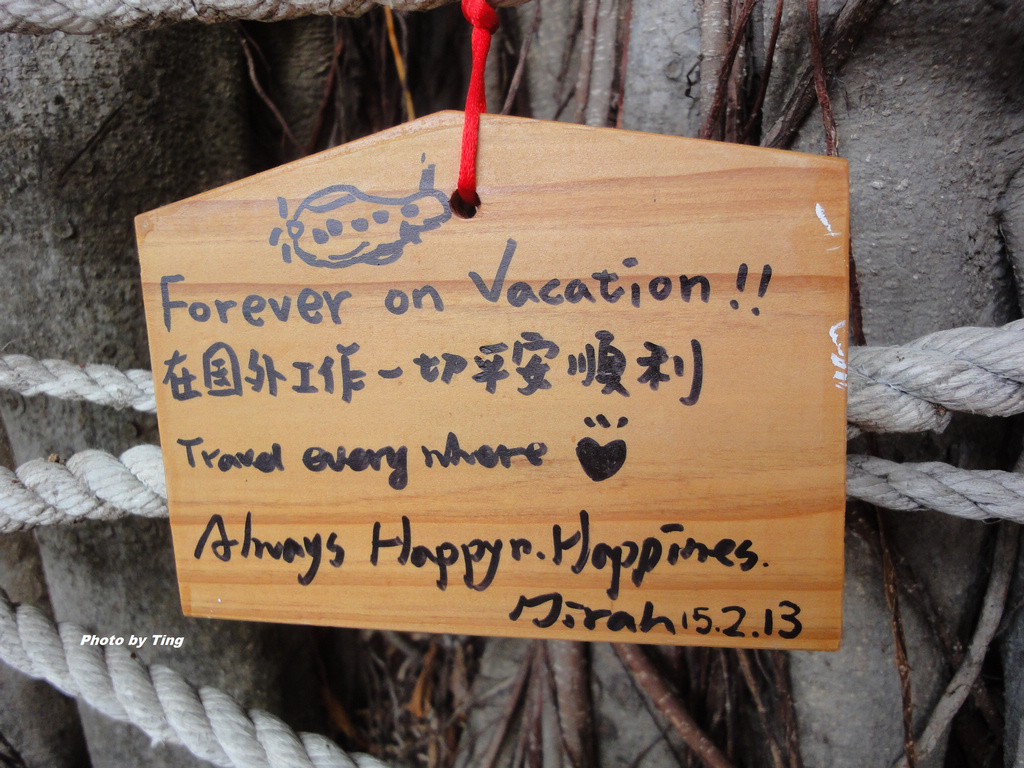 Forever on Vacation !!
在国外工作一切平安順利
Travel every where
Always Happyn. Happines.
Jirah 15.2.13
Photo by Ting